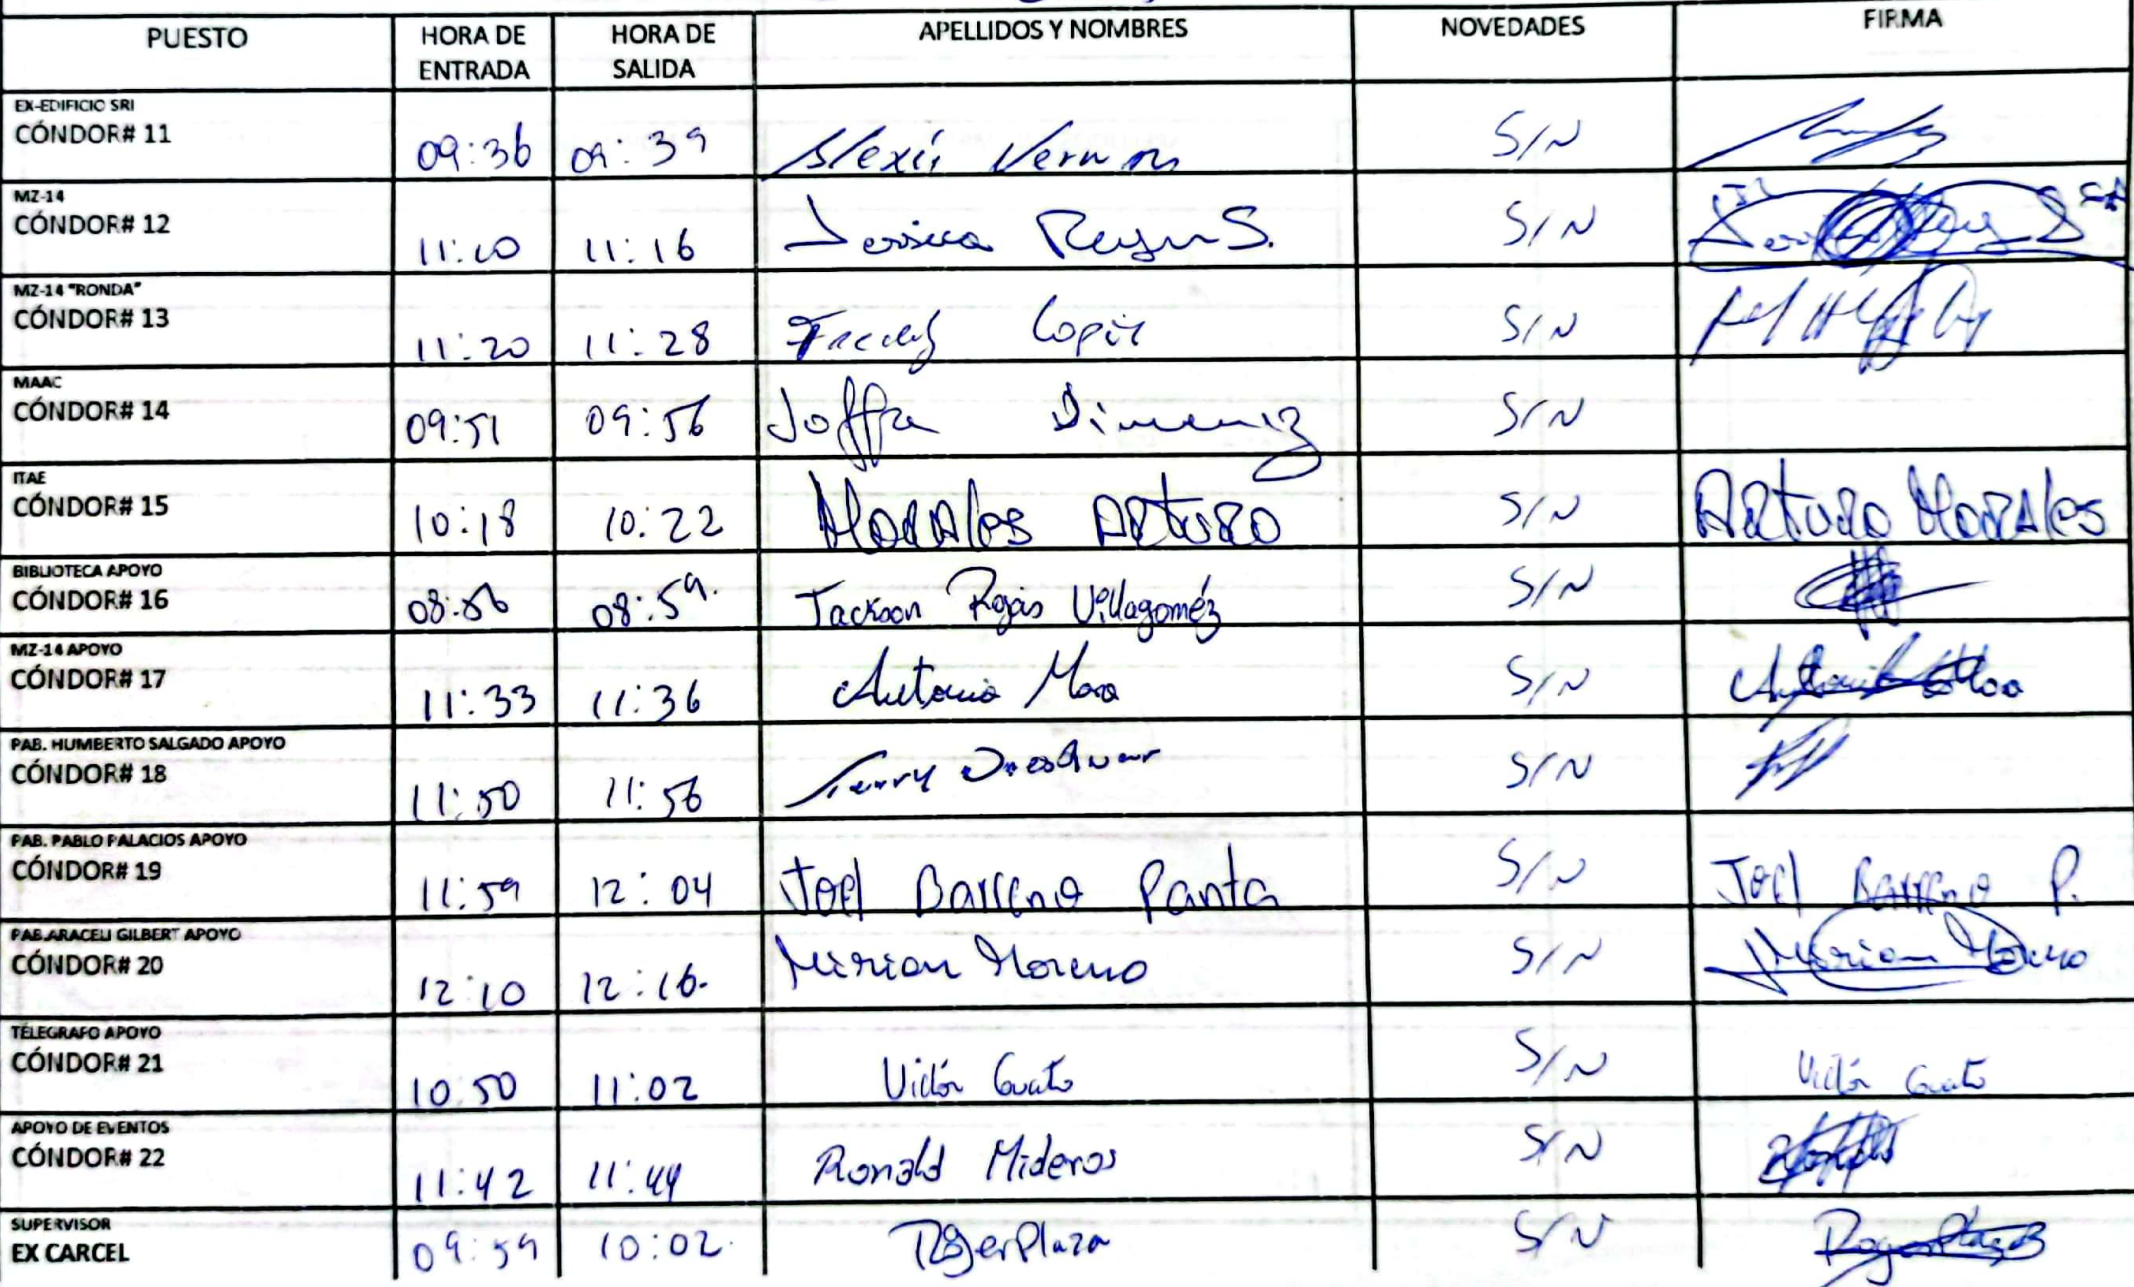 PUESTO HORA DE ENTRADA HORA DE SALIDA APELLIDOS Y NOMBRES NOVEDADES FIRMA
EX-EDIFICIO SRI
CÓNDOR# 11 09:36 09:39 Alexis S/N
MZ-14
CÓNDOR# 12 11:10 11:16 Jessica S. S/N
MZ-14 "RONDA"
CÓNDOR# 13 11:20 11:28 Freddy S/N
MAAC
CÓNDOR# 14 09:51 09:56 Joffre Jimenez S/N
ITAE
CÓNDOR# 15 10:18 10:22 MORALES ARTURO S/N ARTURO MORALES
BIBLIOTECA APOYO
CÓNDOR# 16 08:56 08:59. Jackson Rojas Villagoméz S/N
MZ-14 APOYO
CÓNDOR# 17 11:33 11:36 Antonio Mora S/N
PAB. HUMBERTO SALGADO APOYO
CÓNDOR# 18 11:50 11:56 S/N
PAB. PABLO PALACIOS APOYO
CÓNDOR# 19 11:59 12:04 Joel Barreno Panta S/N Joel Barreno P.
PAB.ARACELI GILBERT APOYO
CÓNDOR# 20 12:10 12:16. Mirian Moreno S/N Mirian Moreno
TELEGRAFO APOYO
CÓNDOR# 21 10:50 11:02 Victór Guato S/N Victór Guato
APOYO DE EVENTOS
CÓNDOR# 22 11:42 11:44 Ronald Mideros S/N
SUPERVISOR
EX CARCEL 09:59 10:02. Roger Plaza S/N